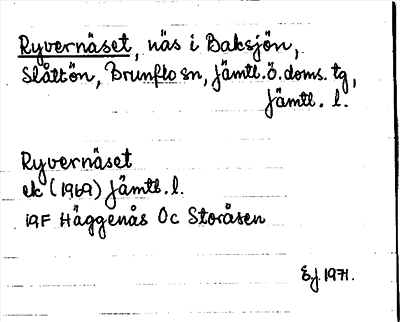 Ryvernäset, näs i Baksjön,
Slåttön, Brunflo sn, Jämtl.ö.doms. tg,
Jämtl. l.
Ryvernäset
ek (1969) Jämtl. l.
19F Häggenås Oc Storåsen
E.J. 1971.